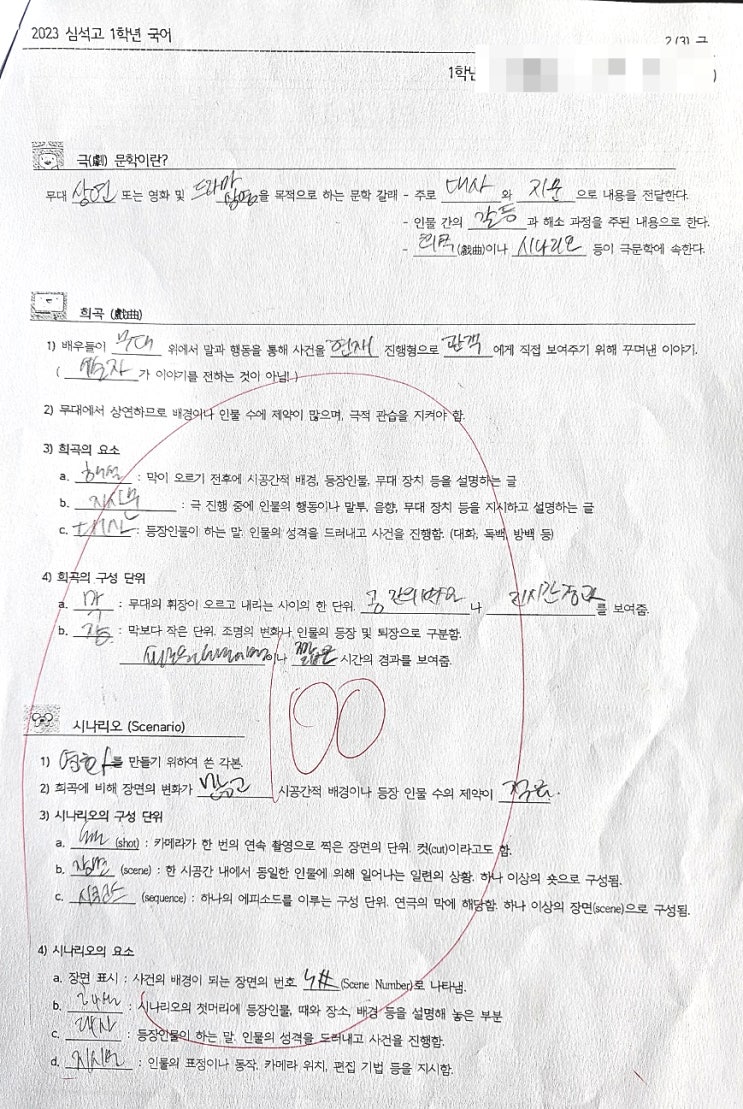 2023 심석고 1학년 국어
2 (3) 극
1학년
극(劇) 문학이란?
무대 상연 또는 영화 및 드라마 상영을 목적으로 하는 문학 갈래 - 주로 대사 와 지문 으로 내용을 전달한다.
- 인물 간의 갈등 과 해소 과정을 주된 내용으로 한다.
- 희곡 (戱曲)이나 시나리오 등이 극문학에 속한다.
희곡 (戱曲)
1) 배우들이 무대 위에서 말과 행동을 통해 사건을 현재 진행형으로 관객 에게 직접 보여주기 위해 꾸며낸 이야기.
( 서술자 가 이야기를 전하는 것이 아님! )
2) 무대에서 상연하므로 배경이나 인물 수에 제약이 많으며, 극적 관습을 지켜야 함.
3) 희곡의 요소
a. 해설 : 막이 오르기 전후에 시공간적 배경, 등장인물, 무대 장치 등을 설명하는 글
b. 지시문 : 극 진행 중에 인물의 행동이나 말투, 음향, 무대 장치 등을 지시하고 설명하는 글
c. 대사 : 등장인물이 하는 말. 인물의 성격을 드러내고 사건을 진행함. (대화, 독백, 방백 등)
4) 희곡의 구성 단위
a. 막 : 무대의 휘장이 오르고 내리는 사이의 한 단위. 공간의 변화 나 를 보여줌.
b. 장 : 막보다 작은 단위. 조명의 변화나 인물의 등장 및 퇴장으로 구분함.
이나 짧은 시간의 경과를 보여줌.
90
시나리오 (Scenario)
1) 영화를 만들기 위하여 쓴 각본.
2) 희곡에 비해 장면의 변화가 많고 시공간적 배경이나 등장 인물 수의 제약이 적음.
3) 시나리오의 구성 단위
a. (shot) : 카메라가 한 번의 연속 촬영으로 찍은 장면의 단위. 컷(cut)이라고도 함.
b. 장면 (scene) : 한 시공간 내에서 동일한 인물에 의해 일어나는 일련의 상황. 하나 이상의 숏으로 구성됨.
c. 시퀀스 (sequence) : 하나의 에피소드를 이루는 구성 단위. 연극의 막에 해당함. 하나 이상의 장면(scene)으로 구성됨.
4) 시나리오의 요소
a. 장면 표시 : 사건의 배경이 되는 장면의 번호 S# (Scene Number)로 나타냄.
b. : 시나리오의 첫머리에 등장인물, 때와 장소, 배경 등을 설명해 놓은 부분
c. 대사 : 등장인물이 하는 말. 인물의 성격을 드러내고 사건을 진행함.
d. 지시문 : 인물의 표정이나 동작. 카메라 위치, 편집 기법 등을 지시함.